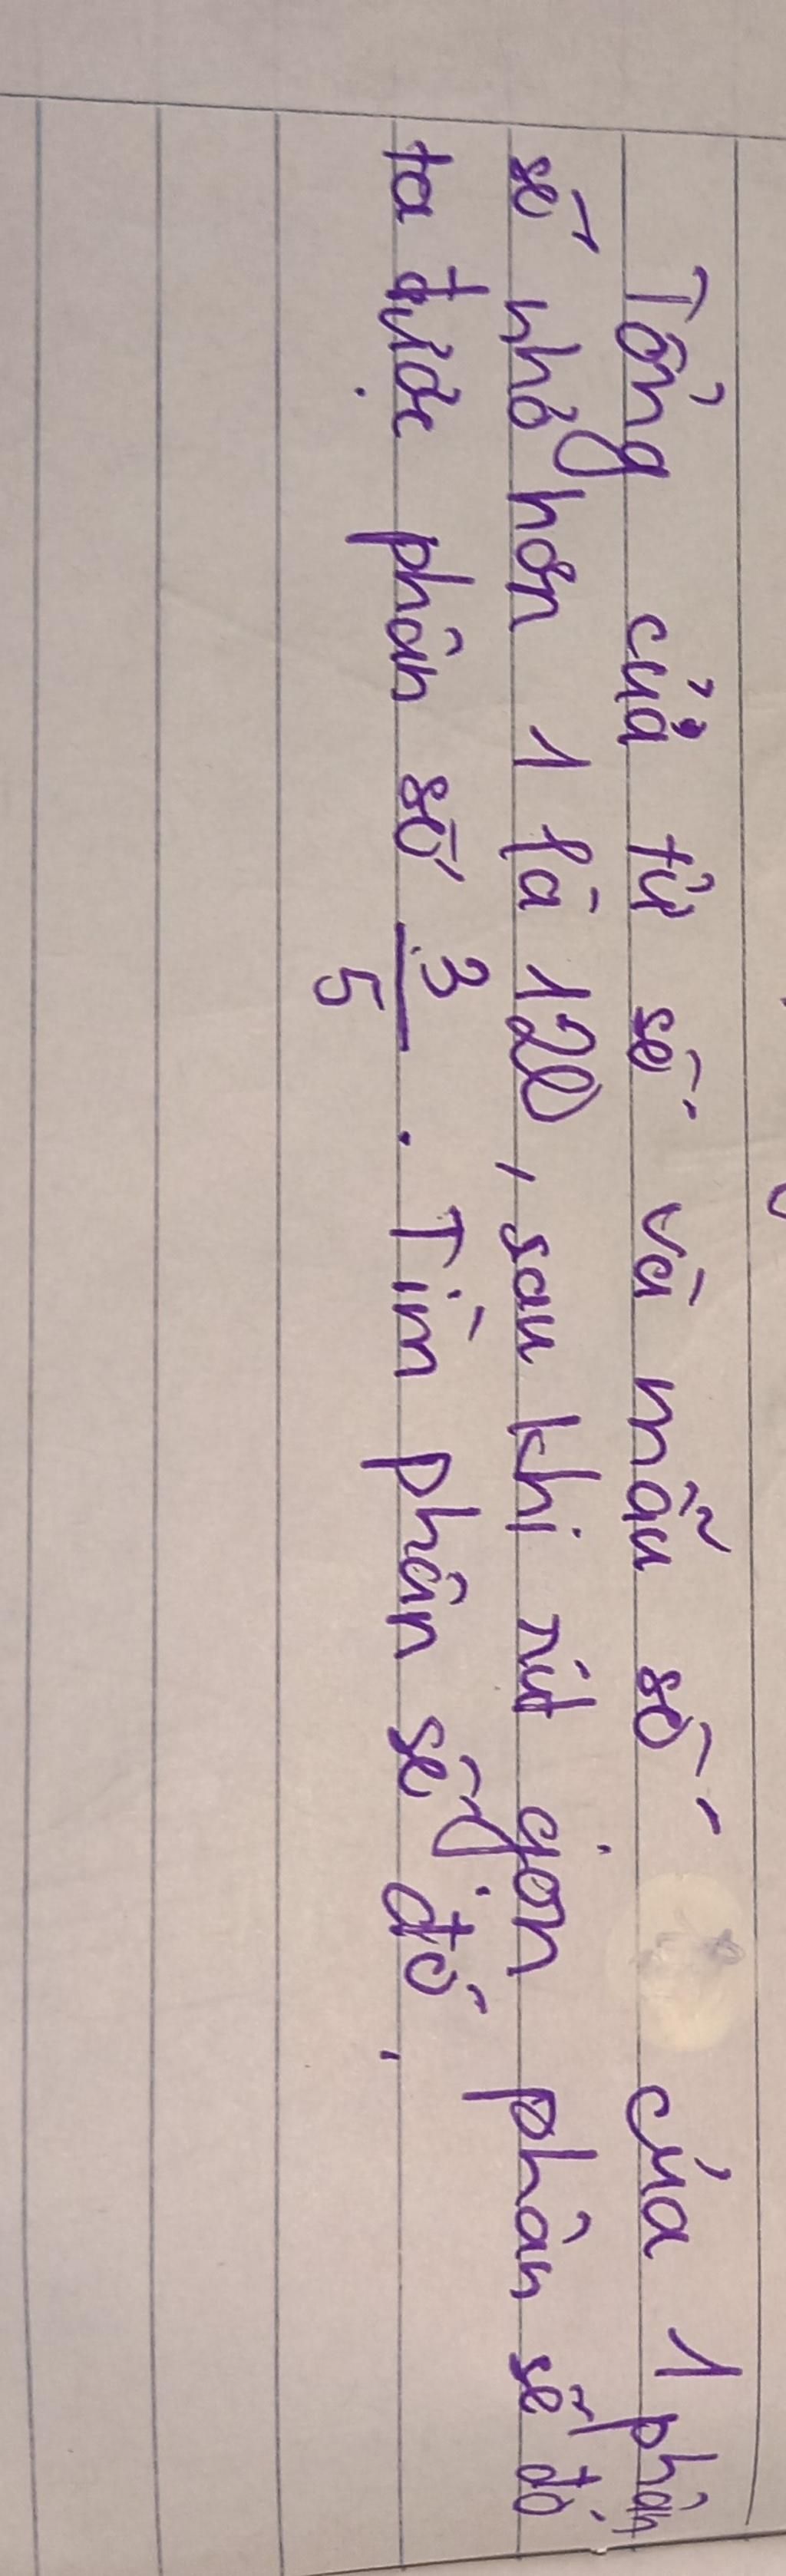 Tổng của tử số và mẫu số của 1 phân
số nhỏ hơn 1 là 120, sau khi rút gọn phân số đó
ta được phân số 3/5. Tìm phân số đó.